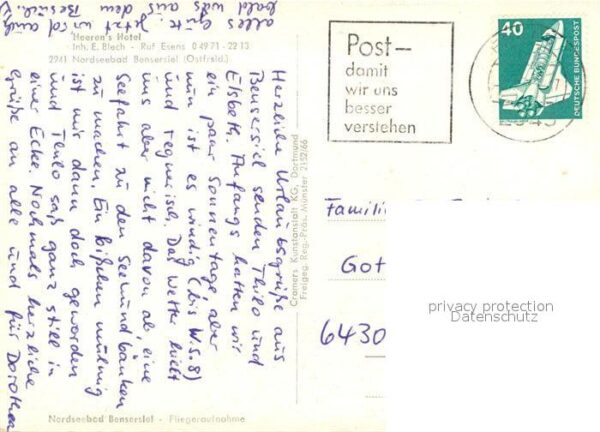 Heeren's Hotel
Inh. E. Blech - Ruf Esens 0 49 71 - 22 13
2941 Nordseebad Bensersiel (Ostfrsld.)
Herzliche Urlaubsgrüße aus
Bensersiel senden Thilo und
Elsbeth. Anfangs hatten wir
ein paar Sonnentage aber
nun ist es windig (bis W.S.8)
und regnerisch. Das Wetter hielt
uns aber nicht davon ab, eine
Seefahrt zu den Seehundbänken
zu machen. Ein bißchen mulmig
ist mir dann doch geworden
und Thilo saß ganz still in
einer Ecke. Nochmals herzliche
Grüße an alle und für Dorothea
alles Gute. Jetzt wird auch
bald was aus dem Besuch.
Nordseebad Bensersiel - Fliegeraufnahme
Cramers Kunstanstalt KG, Dortmund
Freigeg. Reg.-Präs. Münster 2152/66
Post-
damit
wir uns
besser
verstehen
40
DEUTSCHE BUNDESPOST
Famili
Got
6430
privacy protection
Datenschutz